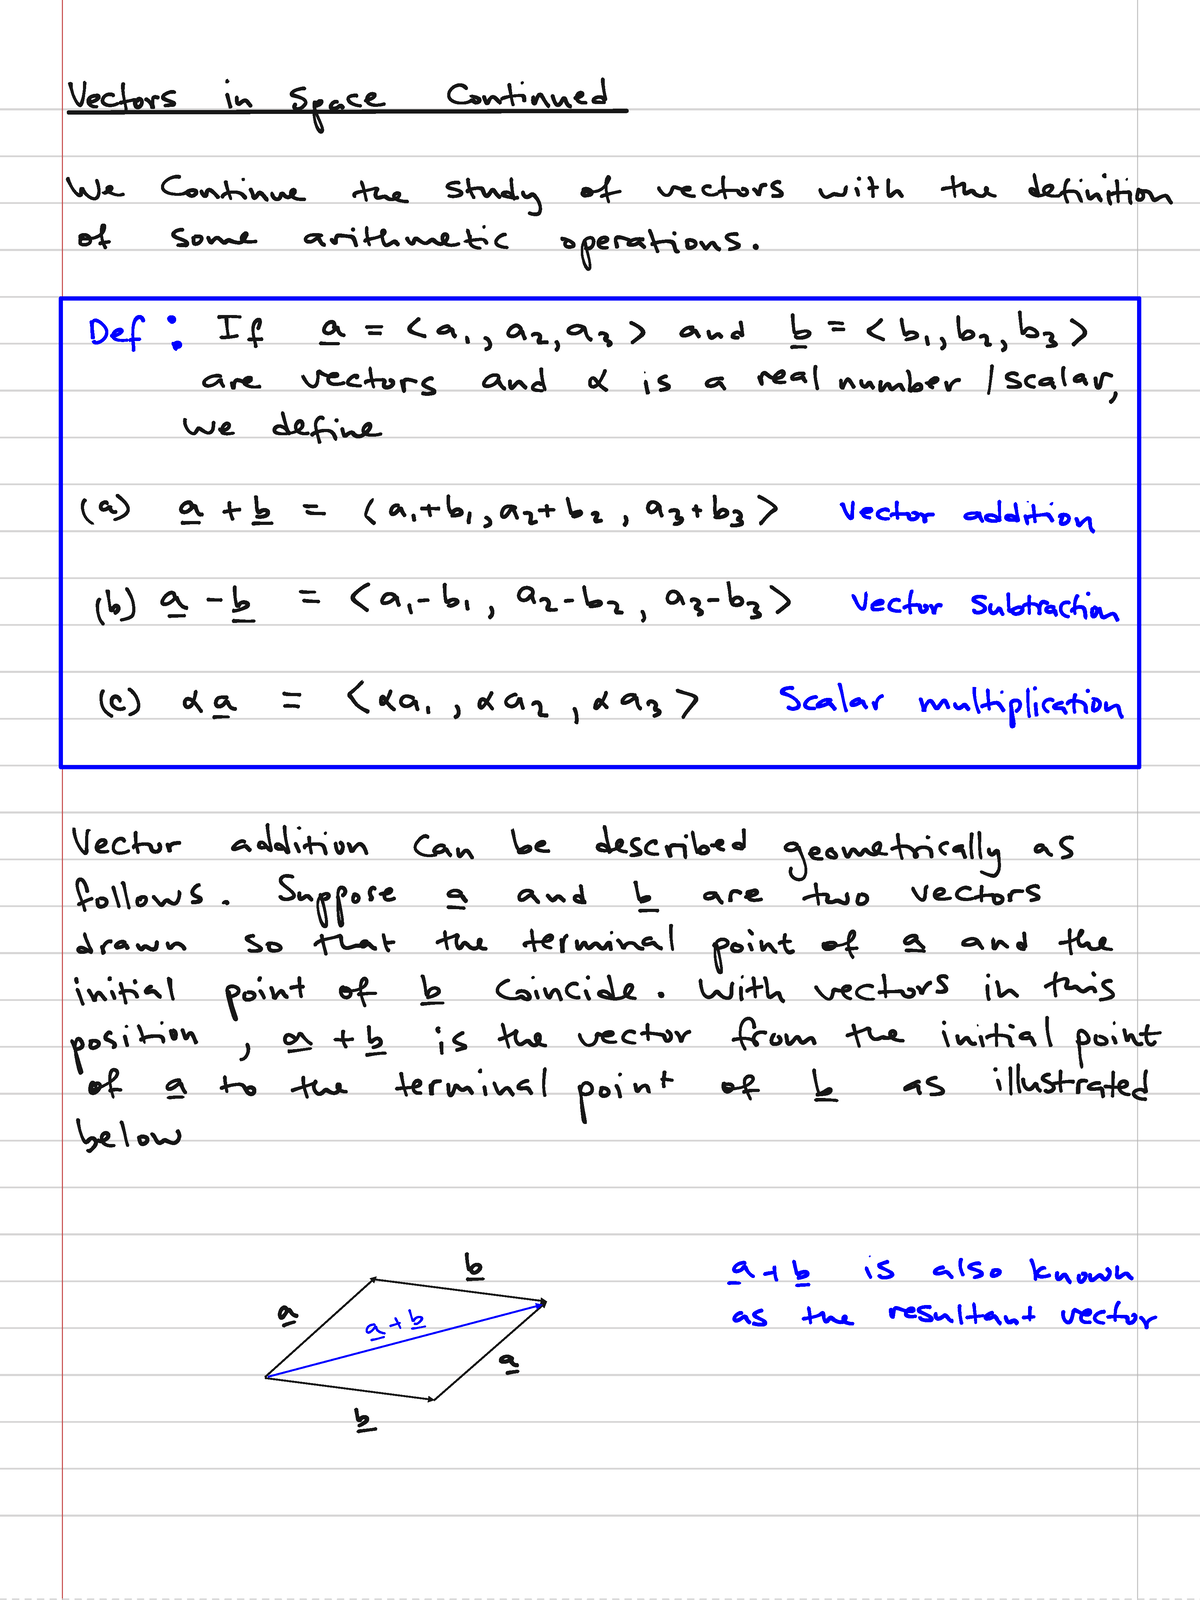 Vectors in Space Continued
We Continue the study of vectors with the definition
of some arithmetic operations.
Def: If a = <a₁, a₂, a₃> and b = <b₁, b₂, b₃>
are vectors and α is a real number / scalar,
we define
(a) a + b = <a₁+b₁, a₂+b₂, a₃+b₃> Vector addition
(b) a - b = <a₁-b₁, a₂-b₂, a₃-b₃> Vector Subtraction
(c) αa = <αa₁, αa₂, αa₃> Scalar multiplication
Vector addition can be described geometrically as
follows. Suppose a and b are two vectors
drawn so that the terminal point of a and the
initial point of b coincide. With vectors in this
position, a + b is the vector from the initial point
of a to the terminal point of b as illustrated
below
b
a
a + b
a
b
a + b is also known
as the resultant vector